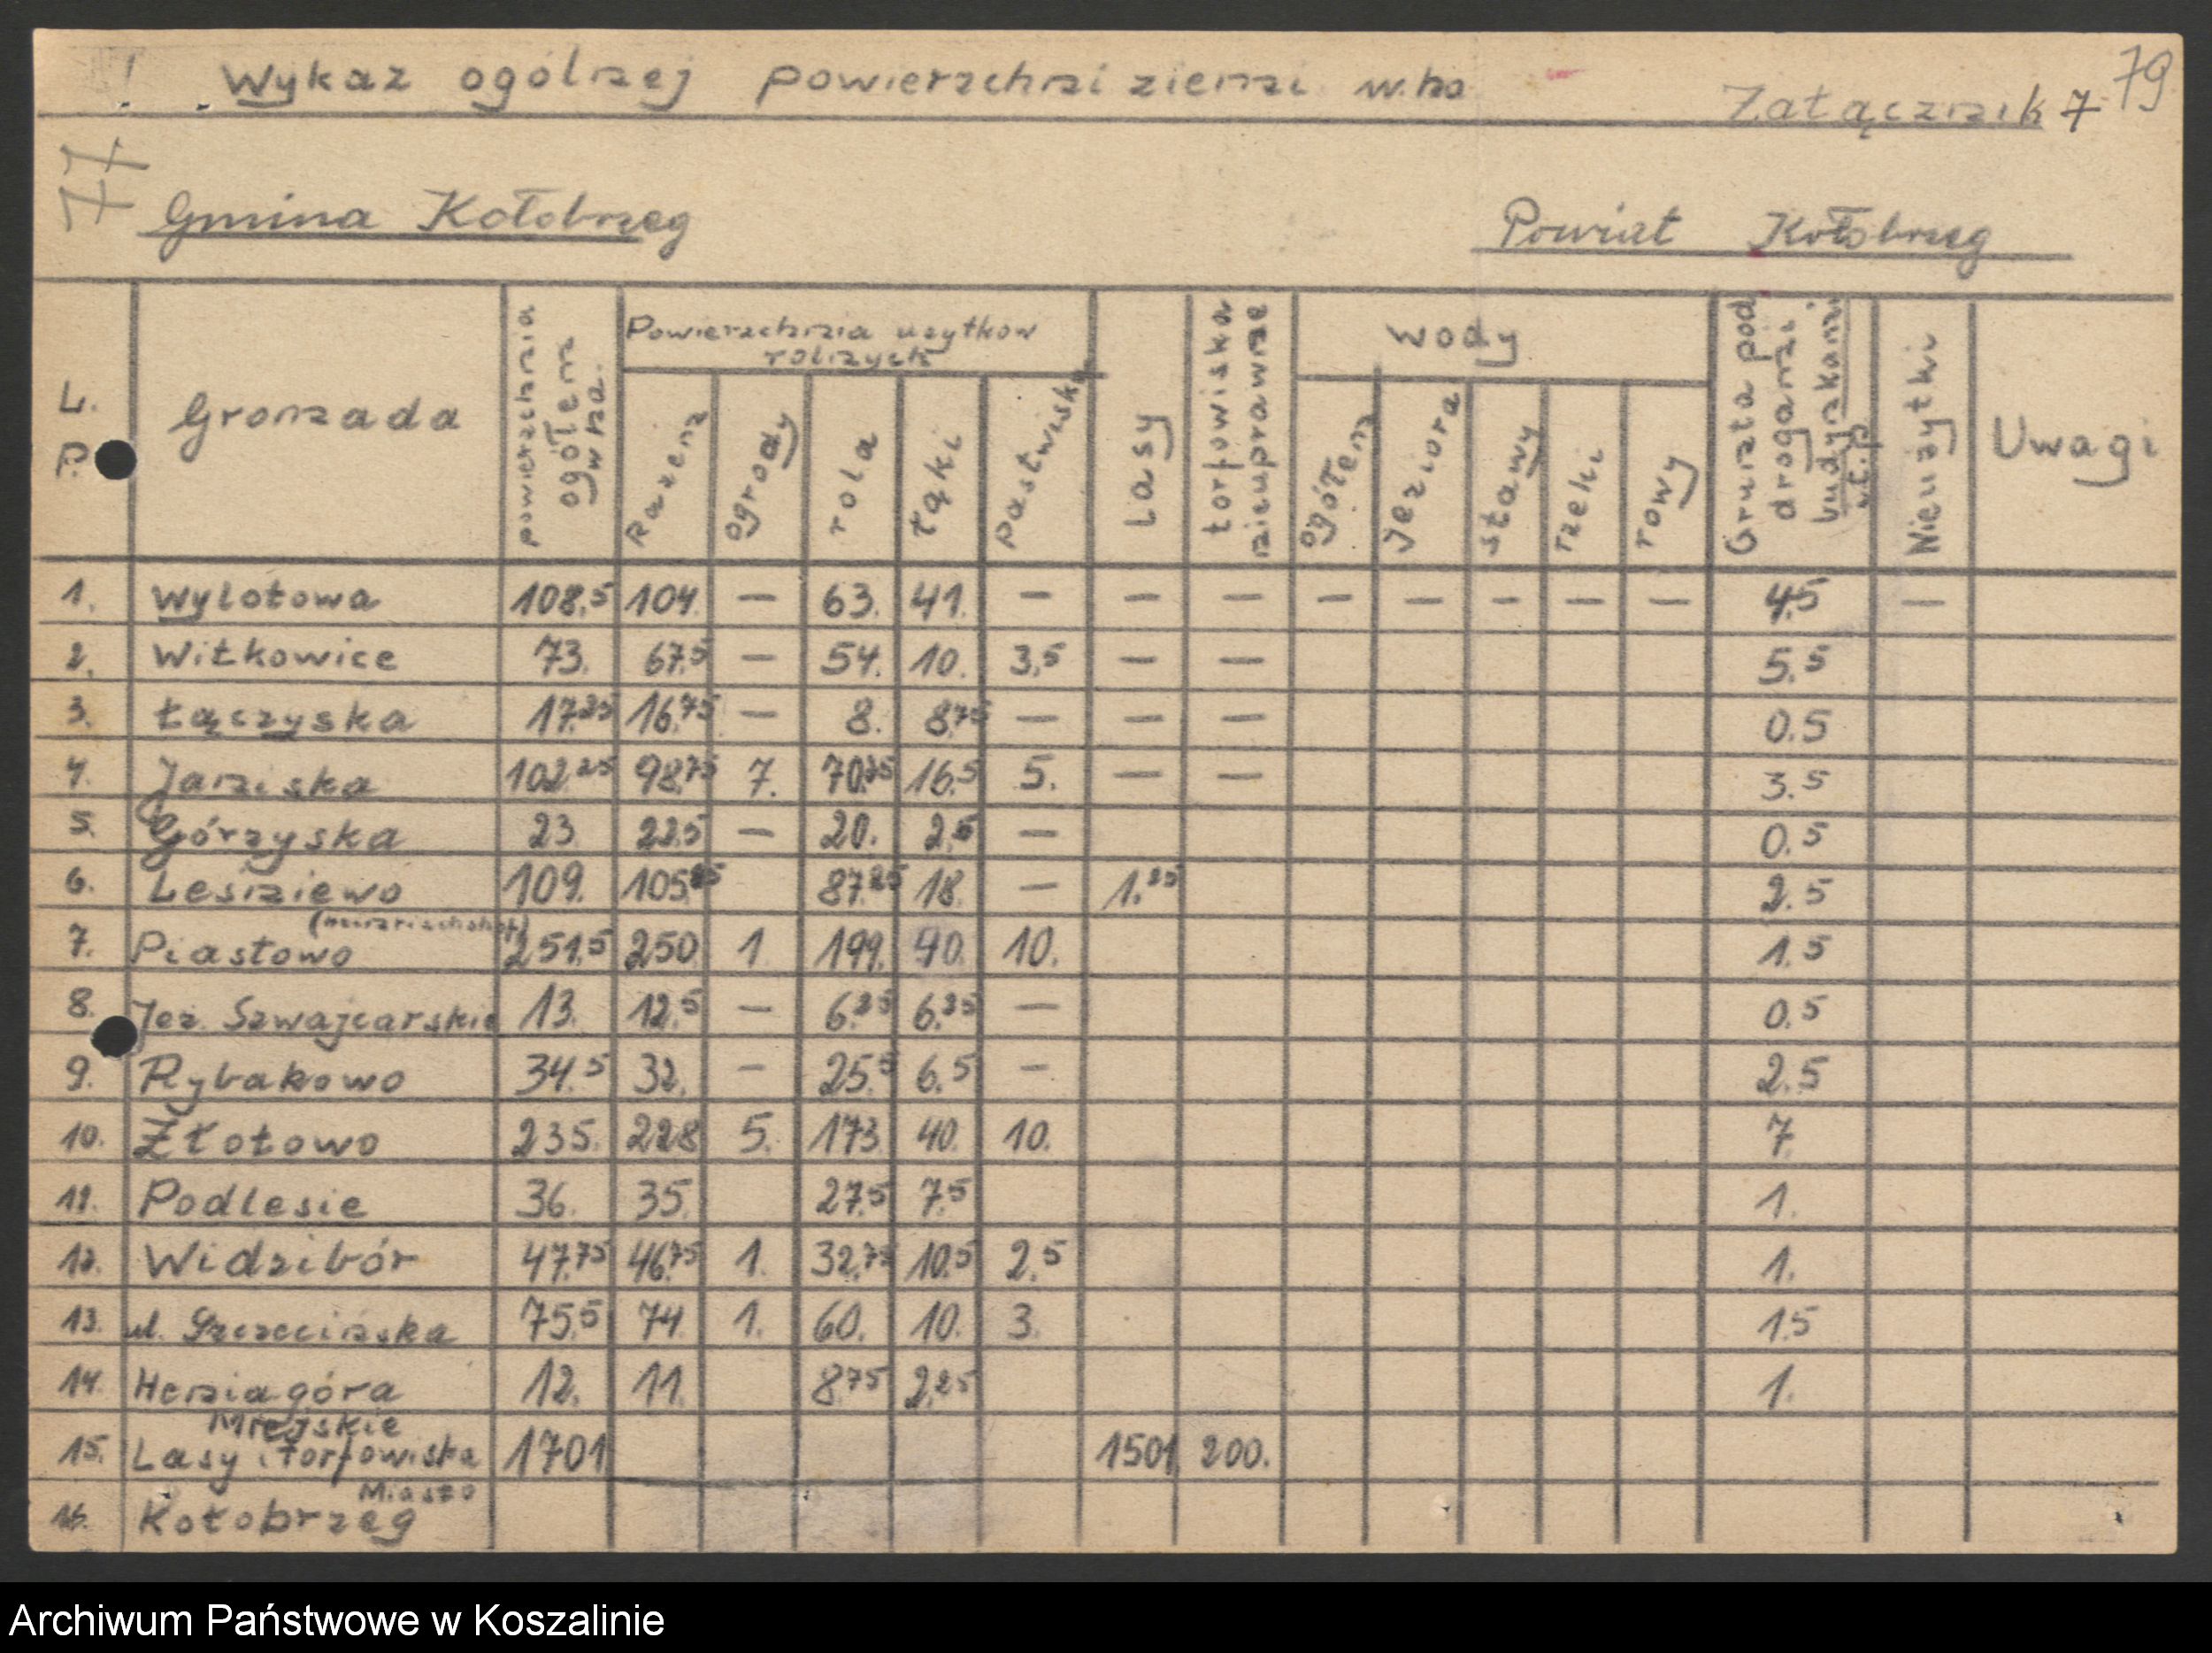 ! Wykaz ogólnej powierzchni ziemi w. ha
Załącznik 7
79
77
Gmina Kołobrzeg
Powiat Kołobrzeg
L. P. Gromada powierzchnia ogółem w ha. Powierzchnia użytków rolnych Lasy torfowiska nieuprawne Wody Grunta pod drogami budynkami i t.p Nieużytki Uwagi
Razem ogrody rola łąki pastwiska ogółem Jeziora stawy rzeki rowy
1. Wylotowa 108,5 104. — 63. 41. — — — — — — — — 4.5 —
2. Witkowice 73. 67.5 — 54. 10. 3,5 — — 5.5
3. Łączyska 17.25 16.75 — 8. 8.75 — — — 0.5
4. Janiska 102.25 98.75 7. 70.25 16.5 5. — — 3.5
5. Górzyska 23 22.5 — 20. 2.5 — 0.5
6. Leśniewo 109. 105.25 87.25 18. — 1.25 2.5
7. Piastowo 251.5 250 1 199. 40. 10. 1.5
8. Jez. Szwajcarskie 13. 12.5 — 6.25 6.25 — 0.5
9. Rybakowo 34.5 32. — 25.5 6.5 — 2.5
10. Złotowo 235. 228 5. 173 40. 10. 7.
11. Podlesie 36. 35. 27.5 7.5 1.
12. Widzibór 47.75 46.75 1. 32.75 10.5 2.5 1.
13. ul. Szczecińska 75.5 74 1. 60. 10. 3. 1.5
14. Henia góra 12. 11. 8.75 2.25 1.
Miejskie
15. Lasy i torfowiska 1701 1501 200.
Miasto
16. Kołobrzeg
Archiwum Państwowe w Koszalinie